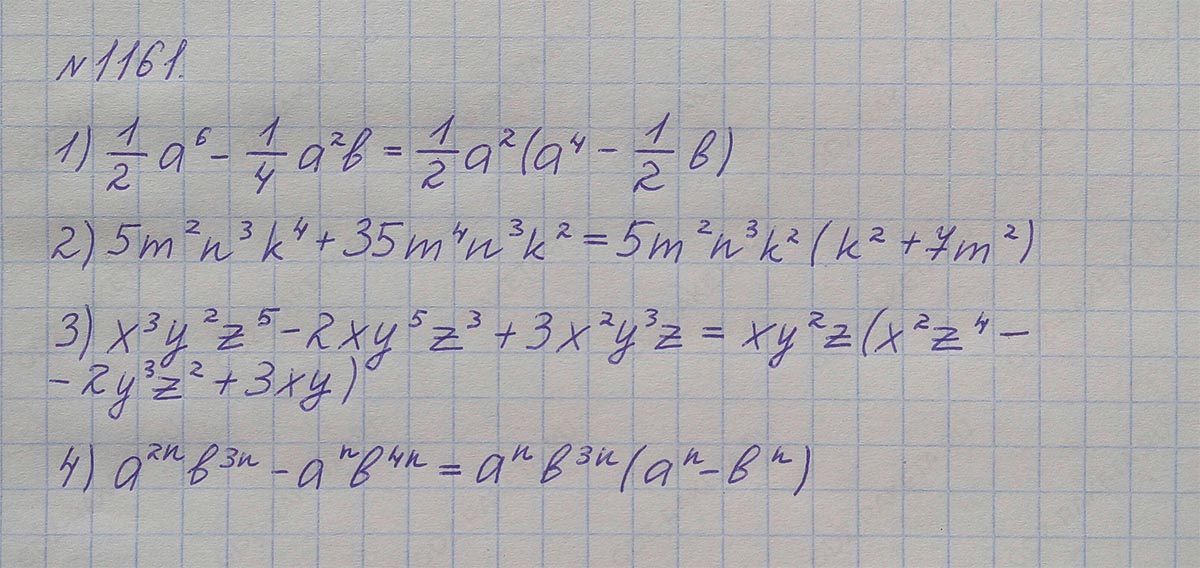 №1161.
1) 1/2 a⁶ - 1/4 a²b = 1/2 a²(a⁴ - 1/2 b)
2) 5m²n³k⁴ + 35m⁴n³k² = 5m²n³k²(k² + 7m²)
3) x³y²z⁵ - 2xy⁵z³ + 3x²y³z = xy²z(x²z⁴ -
- 2y³z² + 3xy)
4) a²ⁿb³ⁿ - aⁿb⁴ⁿ = aⁿb³ⁿ(aⁿ - bⁿ)